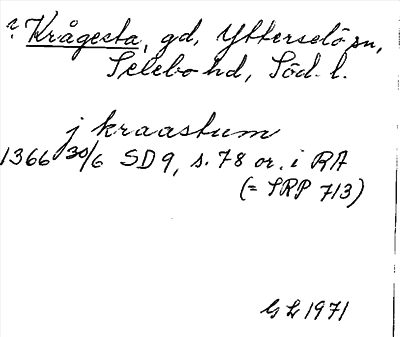 ? Krågesta, gd, Ytterselö sn,
Selebo hd, Söd. l.
j kraastum
1366 30/6 SD 9, s. 78 or. i RA
(= SRP 713)
GL 1971